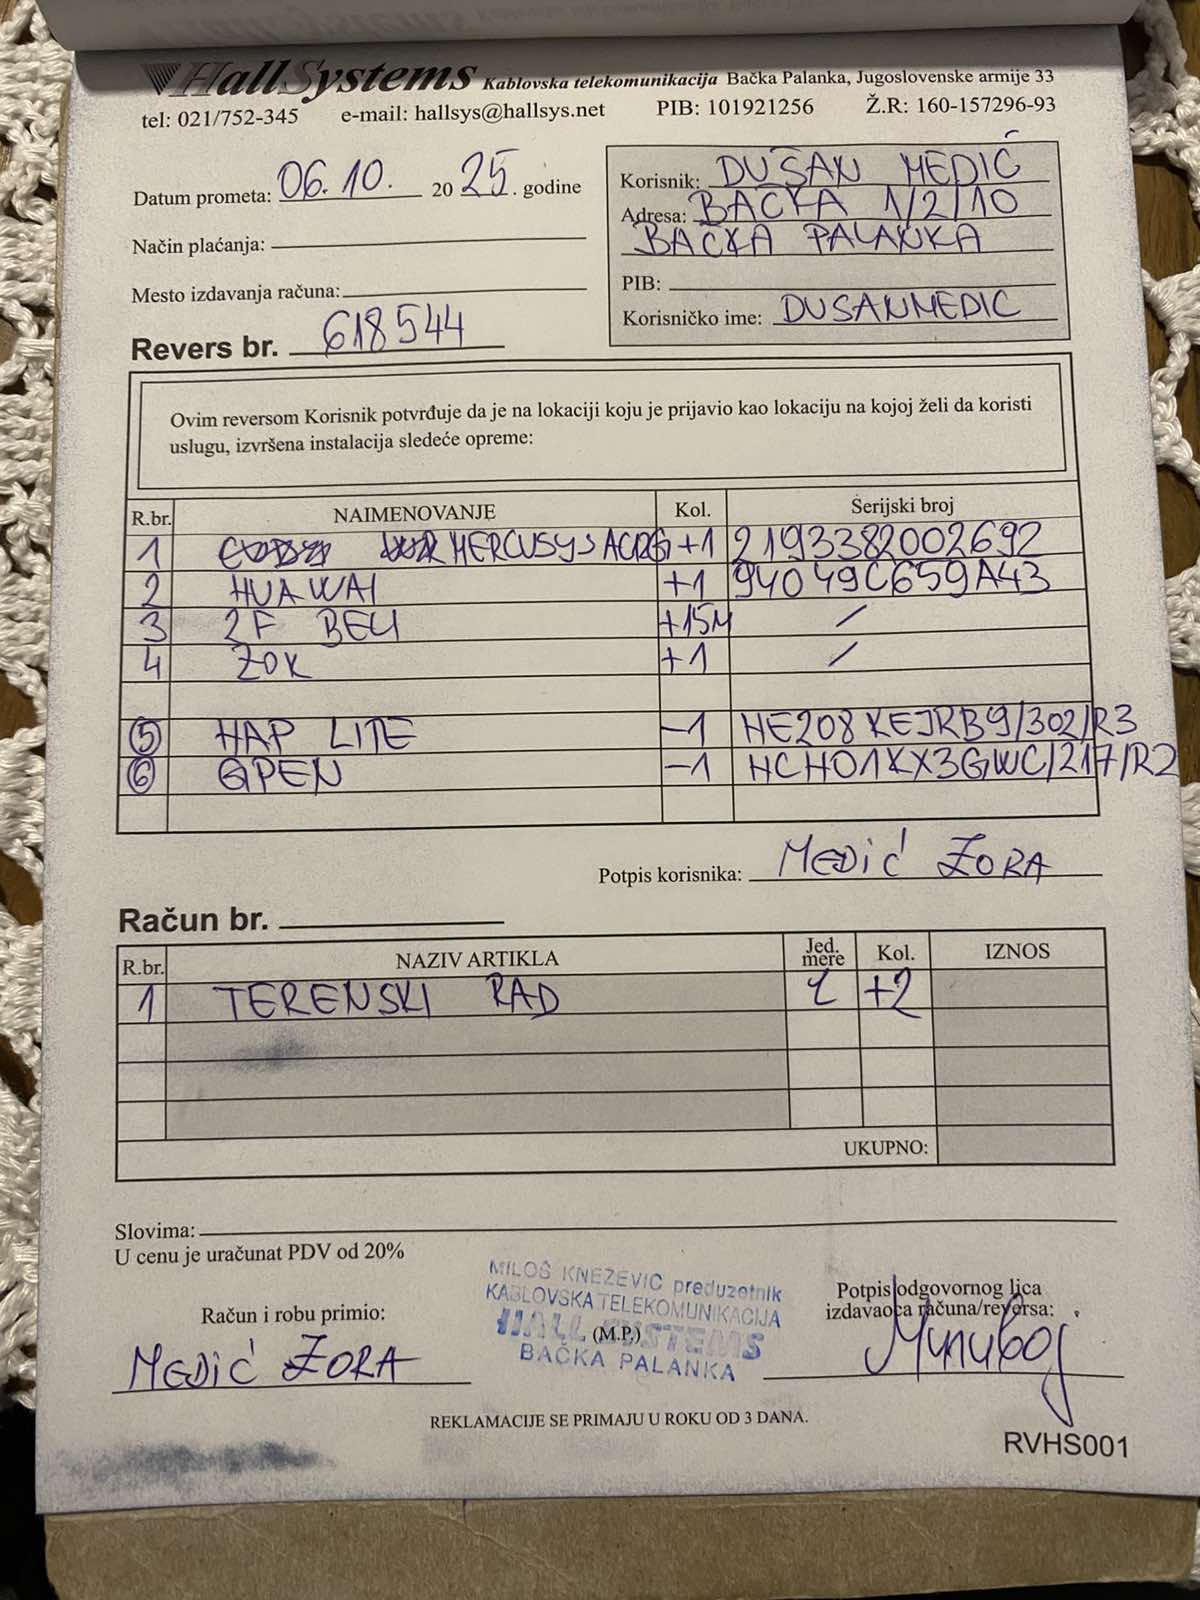 HallSystems Kablovska telekomunikacija Bačka Palanka, Jugoslovenske armije 33
tel: 021/752-345 e-mail: hallsys@hallsys.net PIB: 101921256 Ž.R: 160-157296-93
Datum prometa: 06.10. 20 25. godine
Način plaćanja:
Mesto izdavanja računa:
Revers br. 618544
Korisnik: DUŠAN MEDIĆ
Adresa: BAČKA 1/2/10
BAČKA PALANKA
PIB:
Korisničko ime: DUSANMEDIC
Ovim reversom Korisnik potvrđuje da je na lokaciji koju je prijavio kao lokaciju na kojoj želi da koristi
uslugu, izvršena instalacija sledeće opreme:
R.br. NAIMENOVANJE Kol. Serijski broj
1 MERCUSYS +1 2193382002692
2 HUAWAI +1 94049C659A43
3 2F BELI +15M /
4 ZOK +1 /
5 HAP LITE -1 HE208KEJRB9/302/R3
6 GPEN -1 HCH01KX3GWC/217/R2
Potpis korisnika: MEDIĆ ZORA
Račun br.
R.br. NAZIV ARTIKLA Jed. mere Kol. IZNOS
1 TERENSKI RAD +2
UKUPNO:
Slovima:
U cenu je uračunat PDV od 20%
Račun i robu primio:
MEDIĆ ZORA
MILOŠ KNEŽEVIĆ preduzetnik
KABLOVSKA TELEKOMUNIKACIJA
HALL SYSTEMS
(M.P.)
BAČKA PALANKA
Potpis odgovornog lica
izdavaoca računa/reversa:
REKLAMACIJE SE PRIMAJU U ROKU OD 3 DANA.
RVHS001